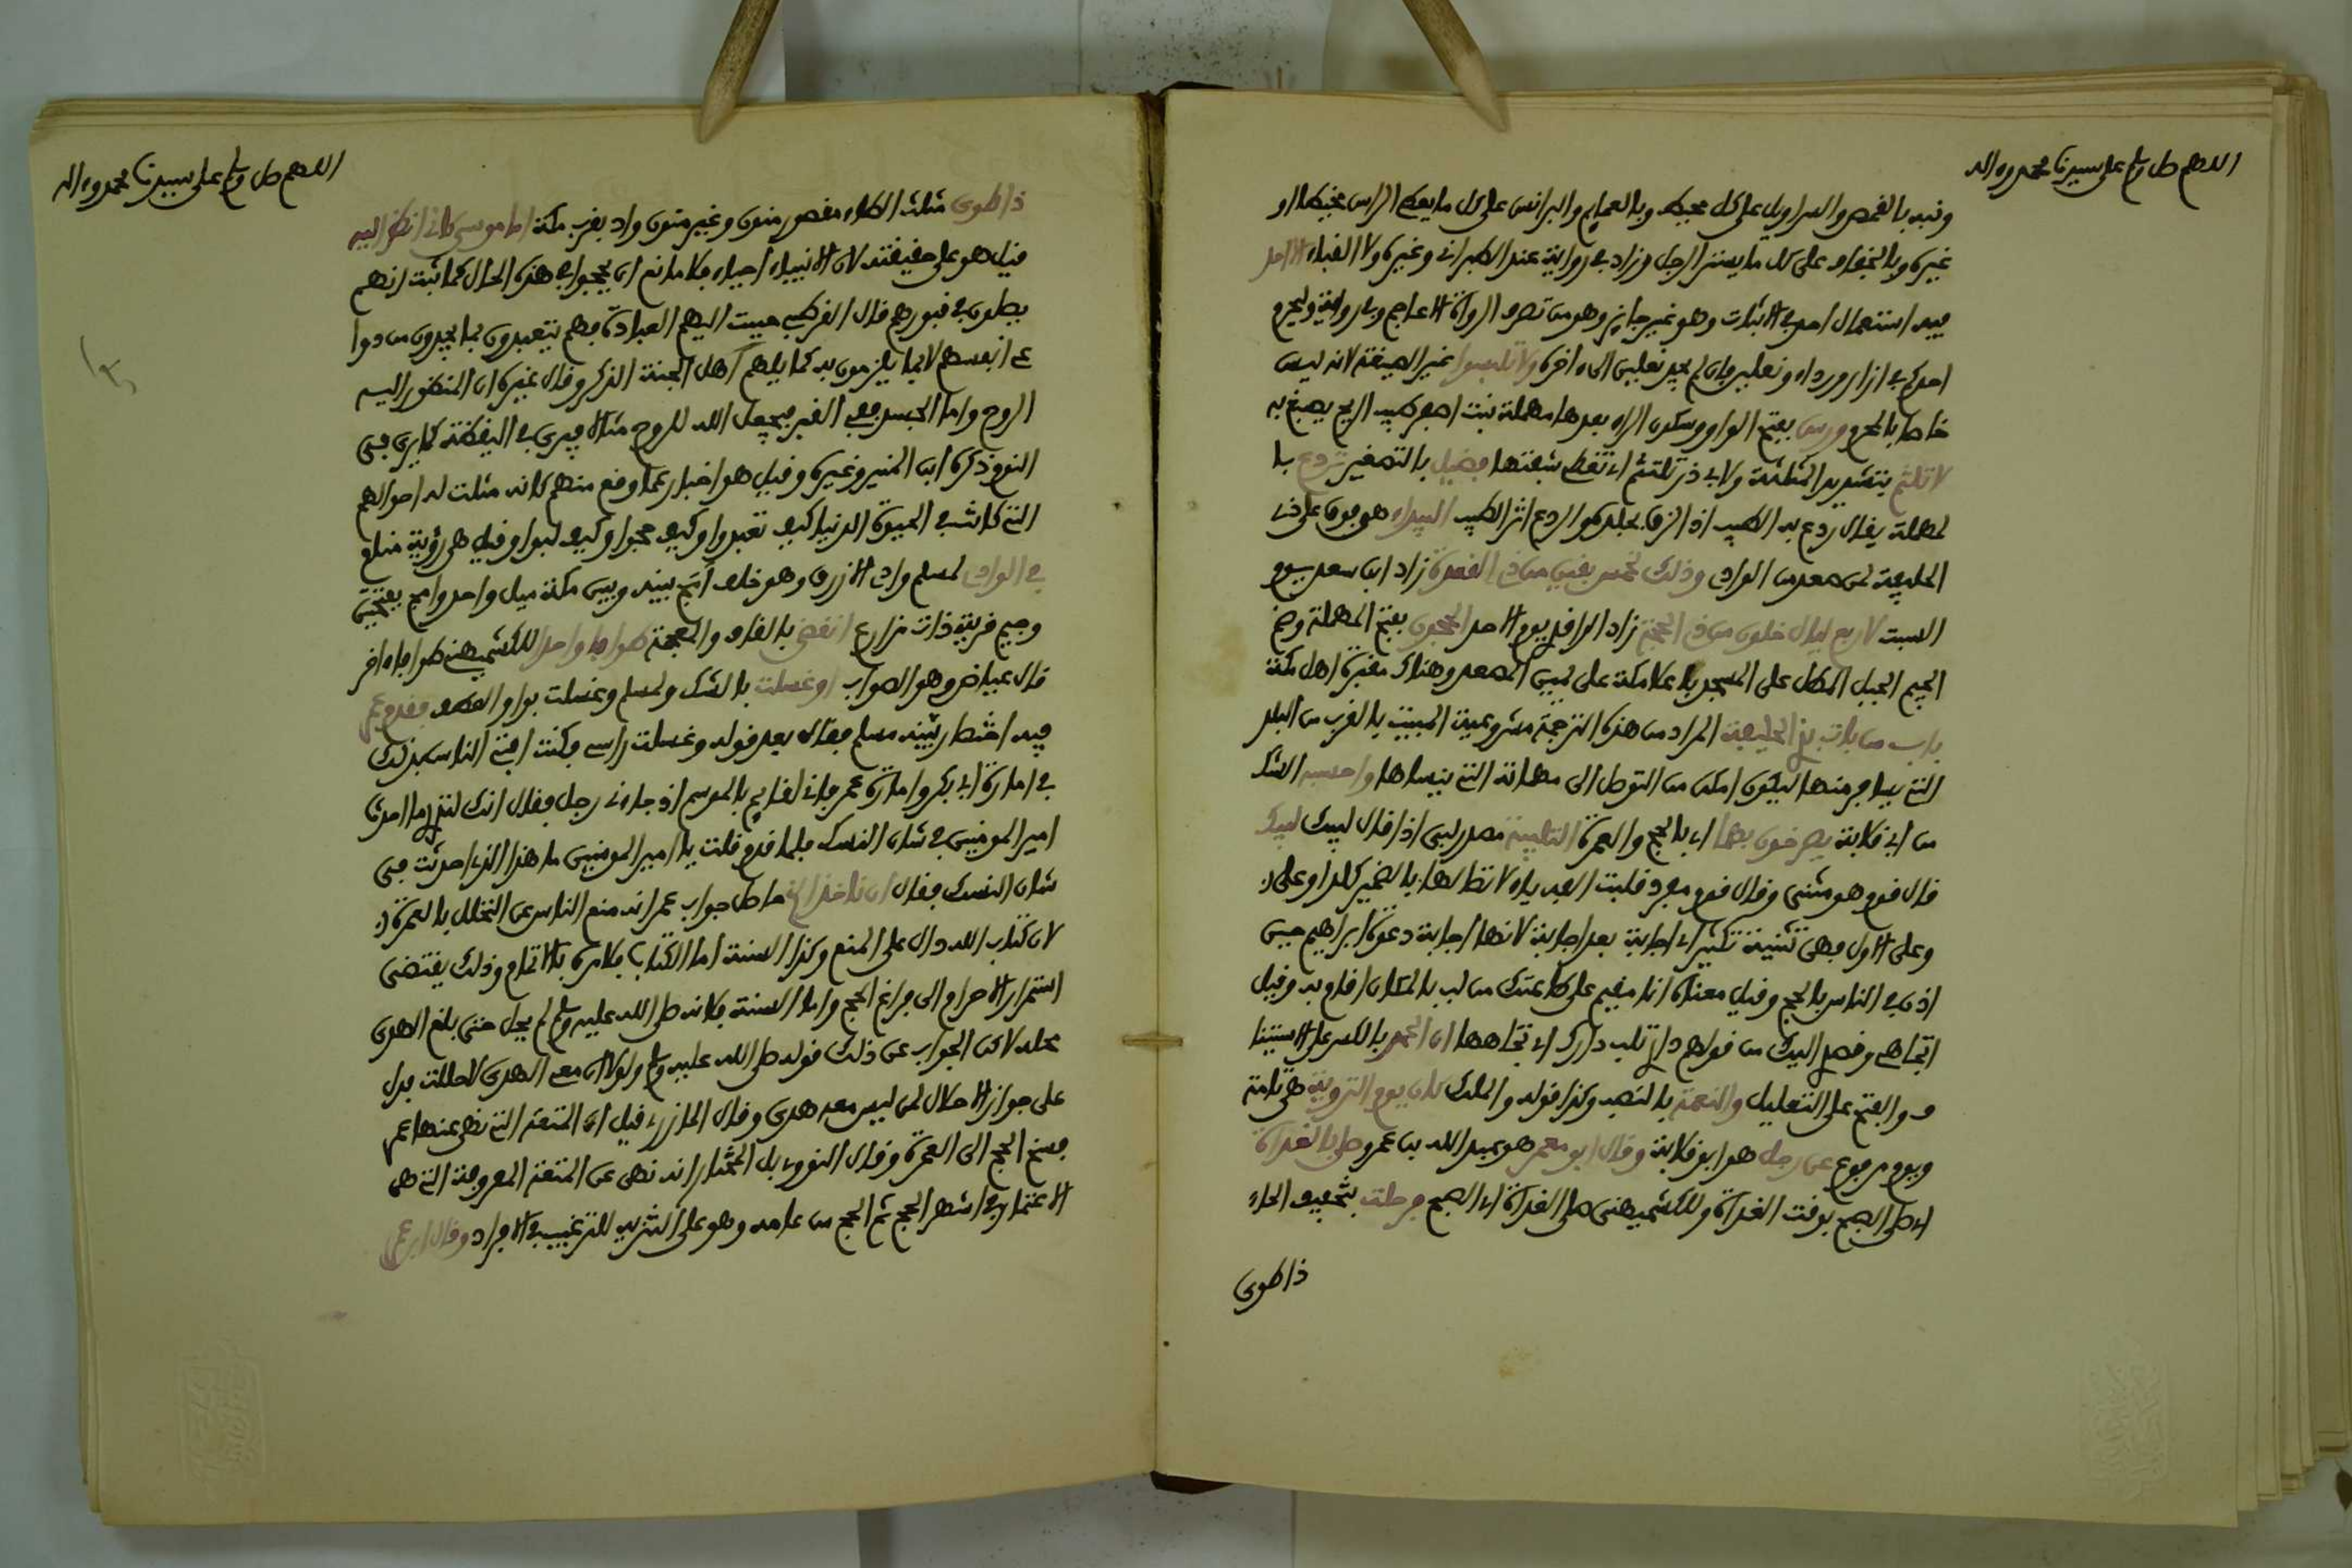 اللهم صل وسلم على سيدنا محمد وءاله
ونبه بالقمص والسراويل على كل محيط وبالعمايم والبرانس على كل ما يغطي الراس مخيطا او
غيره وبالخفاف على كل ما يستر الرجل وزاد في رواية عند الطبراني وغيره ولا القباء الا احد
فيه استعمال احد في الاثبات وهو غير جايز وهو من تصرف الرواة الاعاجم وفي رواية وليحرم
احدكم في ازار ورداء ونعلين فان لم يجد نعلين الى ءاخره ولا تلبسوا غير الصيغة لانه ليس
خاصا بالمحرم ورس بفتح الواو وسكون الراء بعدها مهملة نبت اصفر طيب الريح يصبغ به
لا تلثم بتشديد المثلثة ولابي ذر تلتثم اي تغطي شفتها فضيل بالتصغير تردع با
لمهملة يقال ردع به الطيب اذا لزق بجلده والردع اثر الطيب البيداء هو فوق على ذي
الحليفة لمن صعد من الوادي وذلك لخمس بقين من ذي القعدة زاد ابن سعد يوم
السبت لاربع ليال خلون من ذي الحجة زاد الواقدي يوم الاحد الحجون بفتح المهملة وضم
الجيم الجبل المطل على المسجد باعلا مكة على يمين المصعد وهناك مقبرة اهل مكة
باب من بات بذي الحليفة المراد من هذه الترجمة مشروعية المبيت بالقرب من البلد
التي يسافر منها ليكون امكن من التوصل الى مهماته التي ينساها واحسبه الشك
من ابي قلابة يصرخون بهما اي بالحج والعمرة التلبية مصدر لبى اذا قال لبيك لبيك
قال قوم هو مثنى وقال قوم مفرد قلبت الفه ياء لاتصالها بالضمير كلدا وعلى
وعلى الاول فهي تثنية تكثير اي اجابة بعد اجابة لانها اجابة دعوة ابراهيم حين
اذن في الناس بالحج وقيل معناه انا مقيم على طاعتك من لب بالمكان اقام به وقيل
اتجاهي وقصدي اليك من قولهم داري تلب دارك اي تجاهها ان الحمد بالكسر على الاستينا
ف والفتح على التعليل والنعمة بالنصب وكذا قوله والملك كان يوم التروية هي تامة
ويوم مرفوع عن رجل هو ابو قلابة وقال ابو معمر هو عبد الله بن عمرو صلى بالغداة
اي صلى الصبح بوقت الغداة وللكشميهني صلى الغداة اي الصبح فرحلت بتخفيف الحاء
ذا طوى
اللهم صل وسلم على سيدنا محمد وءاله
ذا طوى مثلث الطاء مقصور منون وغير منون واد بقرب مكة اما موسى كاني انظر اليه
قيل هو على حقيقته لان الانبياء احياء فلا مانع ان يحجوا في هذه الحال كما ثبت انهم
يصلون في قبورهم قال القرطبي حببت اليهم العبادة فهم يتعبدون بما يجدون من دوا
عي انفسهم لا بما يلزمون به كما يلهم اهل الجنة الذكر وقال غيره ان المنظور اليه
الروح واما الجسد ففي القبر فيجعل الله للروح مثالا فيرى في اليقظة كما يرى في
النوم ذكره ابن المنير وغيره وقيل هو اخبار عما وقع منهم كانه مثلت له احوالهم
التي كانت في الحيوة الدنيا كيف تعبدوا وكيف حجوا وكيف لبوا وقيل هي رؤية منام
في الوادي لمسلم وادي الازرق وهو خلف امج بينه وبين مكة ميل واحد وامج بفتحتين
وجيم قرية ذات مزارع انقضي بالقاف والمعجمة طوافا واحدا للكشميهني طوافا ءاخر
قال عياض وهو الصواب او غسلت بالشك ولمسلم وغسلت بواو العطف فقدم عمر
فيه اختصار بينه مسلم فقال بعد قوله وغسلت راسي فكنت افتي الناس بذلك
في امارة ابي بكر وامارة عمر فاني لقايم بالموسم اذ جاءني رجل فقال انك لتدري ما احدث
امير المومنين في شان النسك فلما قدم قلت يا امير المومنين ما هذا الذي احدثت في
شان النسك فقال ان ناخذ الخ حاصل جواب عمر انه منع الناس من التحلل بالعمرة
لان كتاب الله دال على المنع وكذا السنة اما الكتاب فلامره بالاتمام وذلك يقتضي
استمرار الاحرام الى فراغ الحج واما السنة فلانه صلى الله عليه وسلم لم يحل حتى بلغ الهدي
محله لاكن الجواب عن ذلك قوله صلى الله عليه وسلم ولولا ان معي الهدي لاحللت فدل
على جواز الاحلال لمن ليس معه هدي وقال المازري قيل ان المتعة التي نهى عنها عمر
فسخ الحج الى العمرة وقال النووي بل المختار انه نهى عن المتعة المعروفة التي هي
الاعتمار في اشهر الحج ثم الحج من عامه وهو على التنزيه للترغيب في الافراد وقال ابن عمر